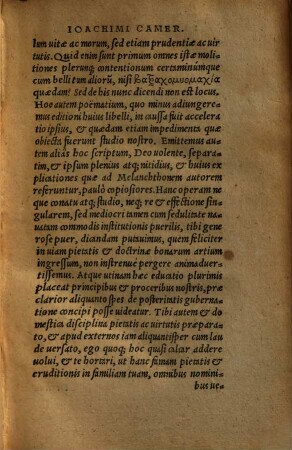 IOACHIMI CAMER.
lum uitæ ac morum, sed etiam prudentiæ ac uir
tutis. Quid enim sunt primum omnes istæ moli-
tiones plerunq; contentionum certaminumque
cum belli tum alioru̅, nisi βατραχομυομαχία
quædam? Sed de his nunc dicendi non est locus.
Hoc autem poëmatium, quo minus adiungere-
mus editioni huius libelli, in caussa fuit accelera
tio ipsius, & quædam etiam impedimenta quæ
obiecta fuerunt studio nostro. Emittemus au-
tem aliàs hoc scriptum, Deo uolente, separa-
tim, & ipsum plenius atq; nitidius, & huius ex-
plicationes quæ ad Melanchthonem autorem
referuntur, paulò copiosiores. Hanc operam ne
que conatu atq; studio, neq; re & effectione sin-
gularem, sed mediocri tamen cum sedulitate na-
uatam commodis institutionis puerilis, tibi gene
rose puer, dicandam putauimus, quem feliciter
in uiam pietatis & doctrinæ bonarum artium
ingressum, non instrenuè pergere animaduer-
tissemus. Atque utinam hæc educatio plurimis
placeat principibus & proceribus nostris, præ
clarior aliquanto spes de posteritatis guberna-
tione concipi posse uideatur. Tibi autem & do
mestica disciplina pietatis ac uirtutis præpara-
to, & apud externos iam aliquantisper cum lau
de uersato, ego quoq; hoc quasi calcar addere
uolui, & te hortari, ut hanc famam pietatis &
eruditionis in familiam tuam, omnibus nomini-
bus ue-